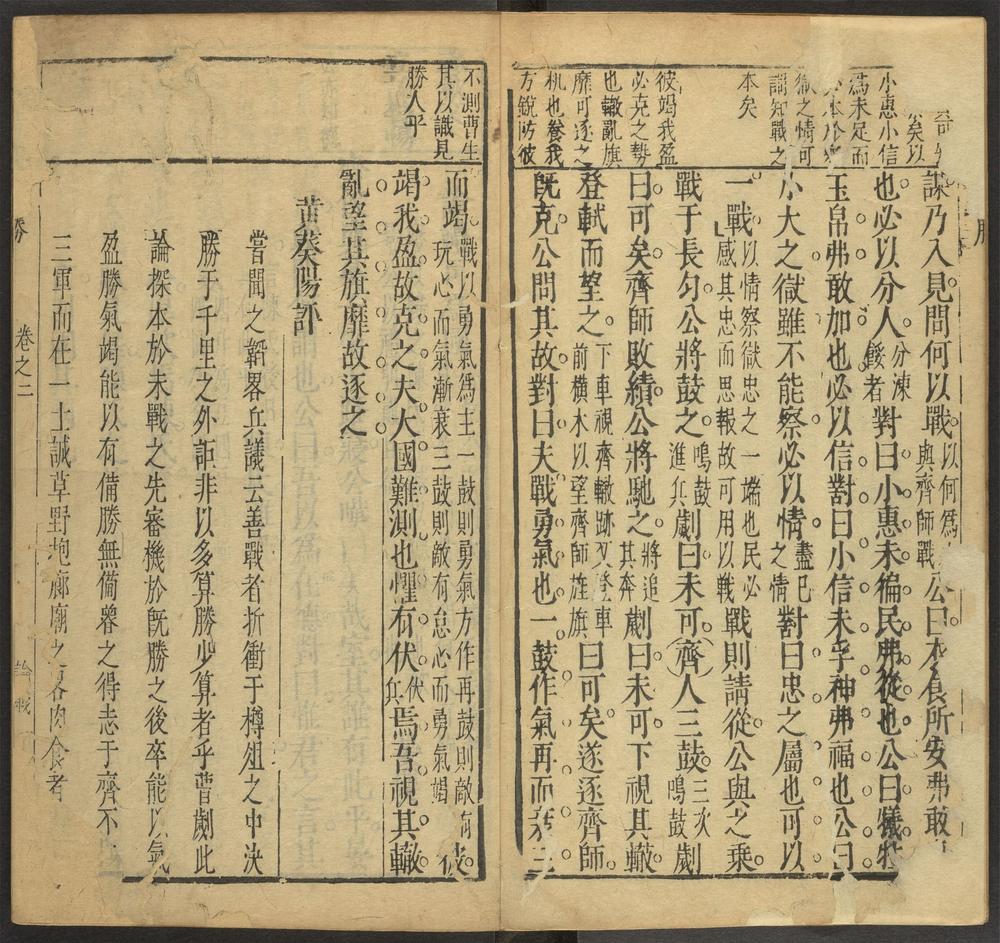 小惠小信
為未足而
獄之情可
謂知戰之
本矣
彼竭我盈
必克之勢
也轍亂旗
靡可逐之
机也養我
方銳防彼
謀乃入見問何以戰以何為與齊師戰公曰衣食所安弗敢
也必以分人分凍餒者對曰小惠未徧民弗從也公曰犧牲
玉帛弗敢加也必以信對曰小信未孚神弗福也公曰
小大之獄雖不能察必以情盡己之情對曰忠之屬也可以
一戰以情察獄忠之一端也民必感其忠而思報故可用以戰戰則請從公與之乘
戰于長勺公將鼓之鳴鼓進兵劌曰未可齊人三鼓三次鳴鼓劌
曰可矣齊師敗績公將馳之將追其奔劌曰未可下視其轍
登軾而望之下車視齊轍跡又登車前橫木以望齊師旌旗曰可矣遂逐齊師
既克公問其故對曰夫戰勇氣也一鼓作氣再而衰三
不測曹生
其以識見
勝人乎
而竭戰以勇氣為主一鼓則勇氣方作再鼓則敵有玩必而氣漸衰三鼓則敵有怠必而勇氣竭彼
竭我盈故克之夫大國難測也懼有伏伏兵焉吾視其轍
亂望其旗靡故逐之
黃葵陽評
嘗聞之韜畧兵議云善戰者折衝于樽俎之中決
勝于千里之外詎非以多算勝少算者乎曹劌此
論探本於未戰之先審機於既勝之後卒能以氣
盈勝氣竭能以有備勝無備魯之得志于齊不
三軍而在一士誠草野抱廊廟之畧肉食者
卷之二